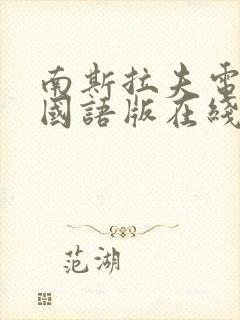 南斯拉夫電
國語版在綫
范湖